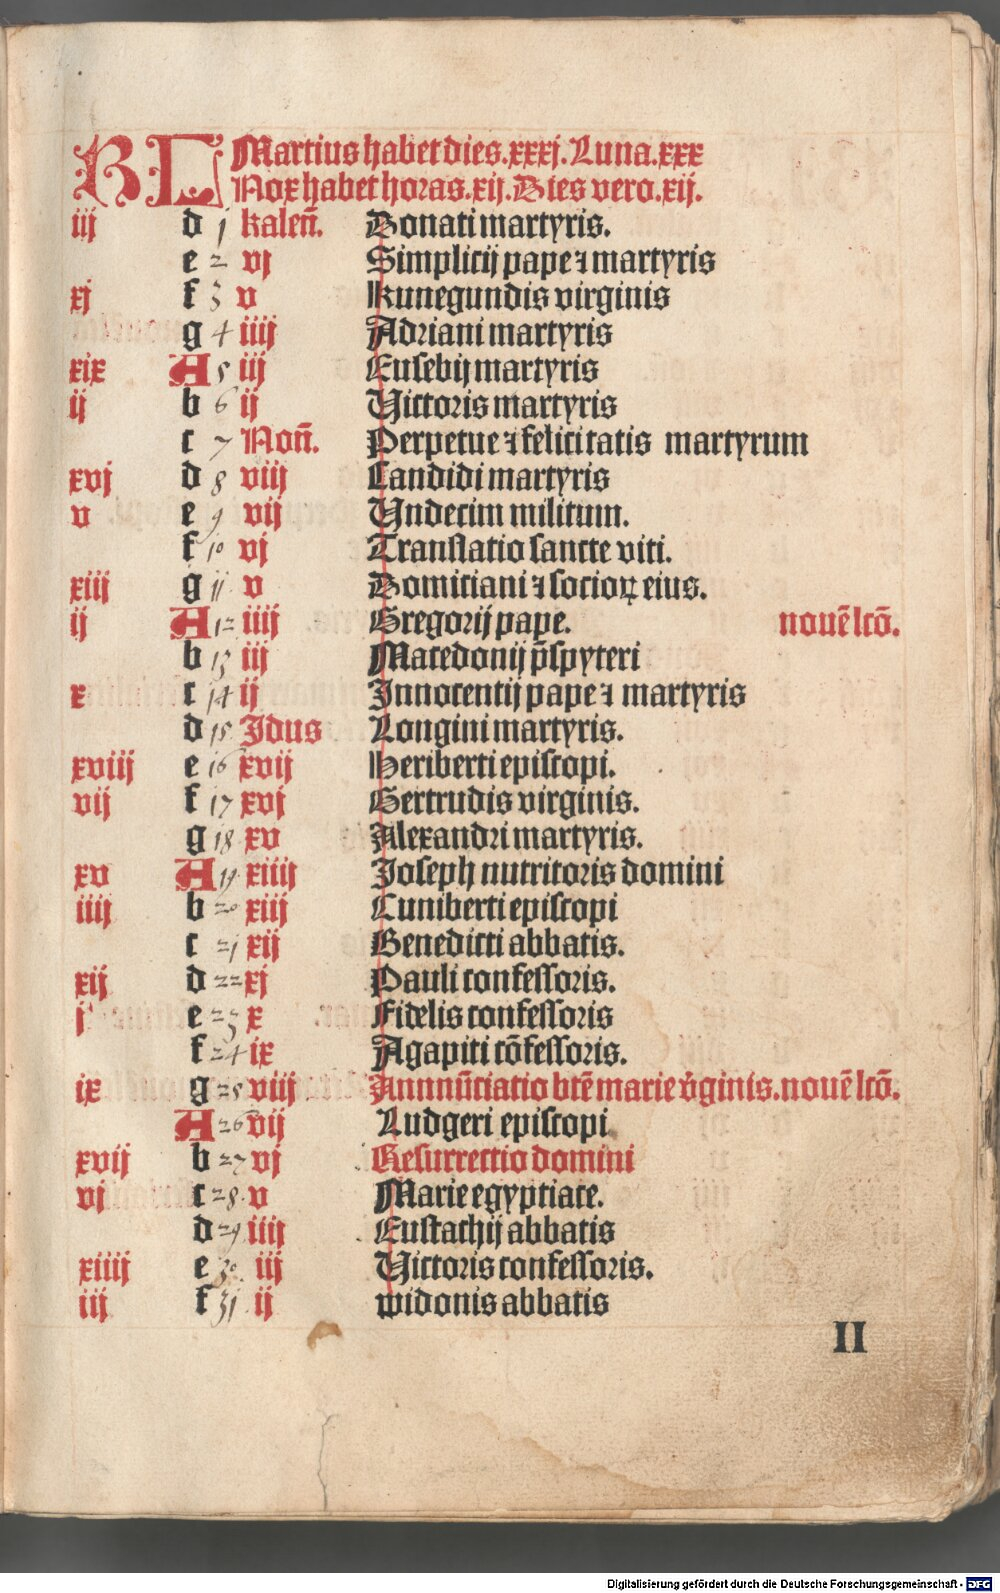 KL Martius habet dies.xxxj.Luna.xxx
Nox habet horas.xij.Dies vero.xij.
iij d 1 kaleñ. Donati martyris.
e 2 vj Simplicij pape ⁊ martyris
xj f 3 v Kunegundis virginis
g 4 iiij Adriani martyris
xix A 5 iij Eusebij martyris
ij b 6 ij Victoris martyris
c 7 Noñ. Perpetue ⁊ felicitatis martyrum
xvj d 8 viij Candidi martyris
v e 9 vij Undecim militum.
f 10 vj Translatio sancte viti.
xiij g 11 v Domiciani ⁊ socioꝝ eius.
ij A 12 iiij Gregorij pape. nouē lcō.
b 13 iij Macedonij p̄spyteri
x c 14 ij Innocentij pape ⁊ martyris
d 15 Idus Longini martyris.
xviij e 16 xvij Heriberti episcopi.
vij f 17 xvj Gertrudis virginis.
g 18 xv Alexandri martyris.
xv A 19 xiiij Joseph nutritoris domini
iiij b 20 xiij Cuniberti episcopi
c 21 xij Benedicti abbatis.
xij d 22 xj Pauli confessoris.
j e 23 x Fidelis confessoris
f 24 ix Agapiti cōfessoris.
ix g 25 viij Annnūciatio btē marie v̓ginis.nouē lcō.
A 26 vij Ludgeri episcopi
xvij b 27 vj Resurrectio domini
vj c 28 v Marie egyptiace.
d 29 iiij Eustachij abbatis
xiiij e 30 iij Victoris confessoris.
iij f 31 ij widonis abbatis
II
Digitalisierung gefördert durch die Deutsche Forschungsgemeinschaft - DFG